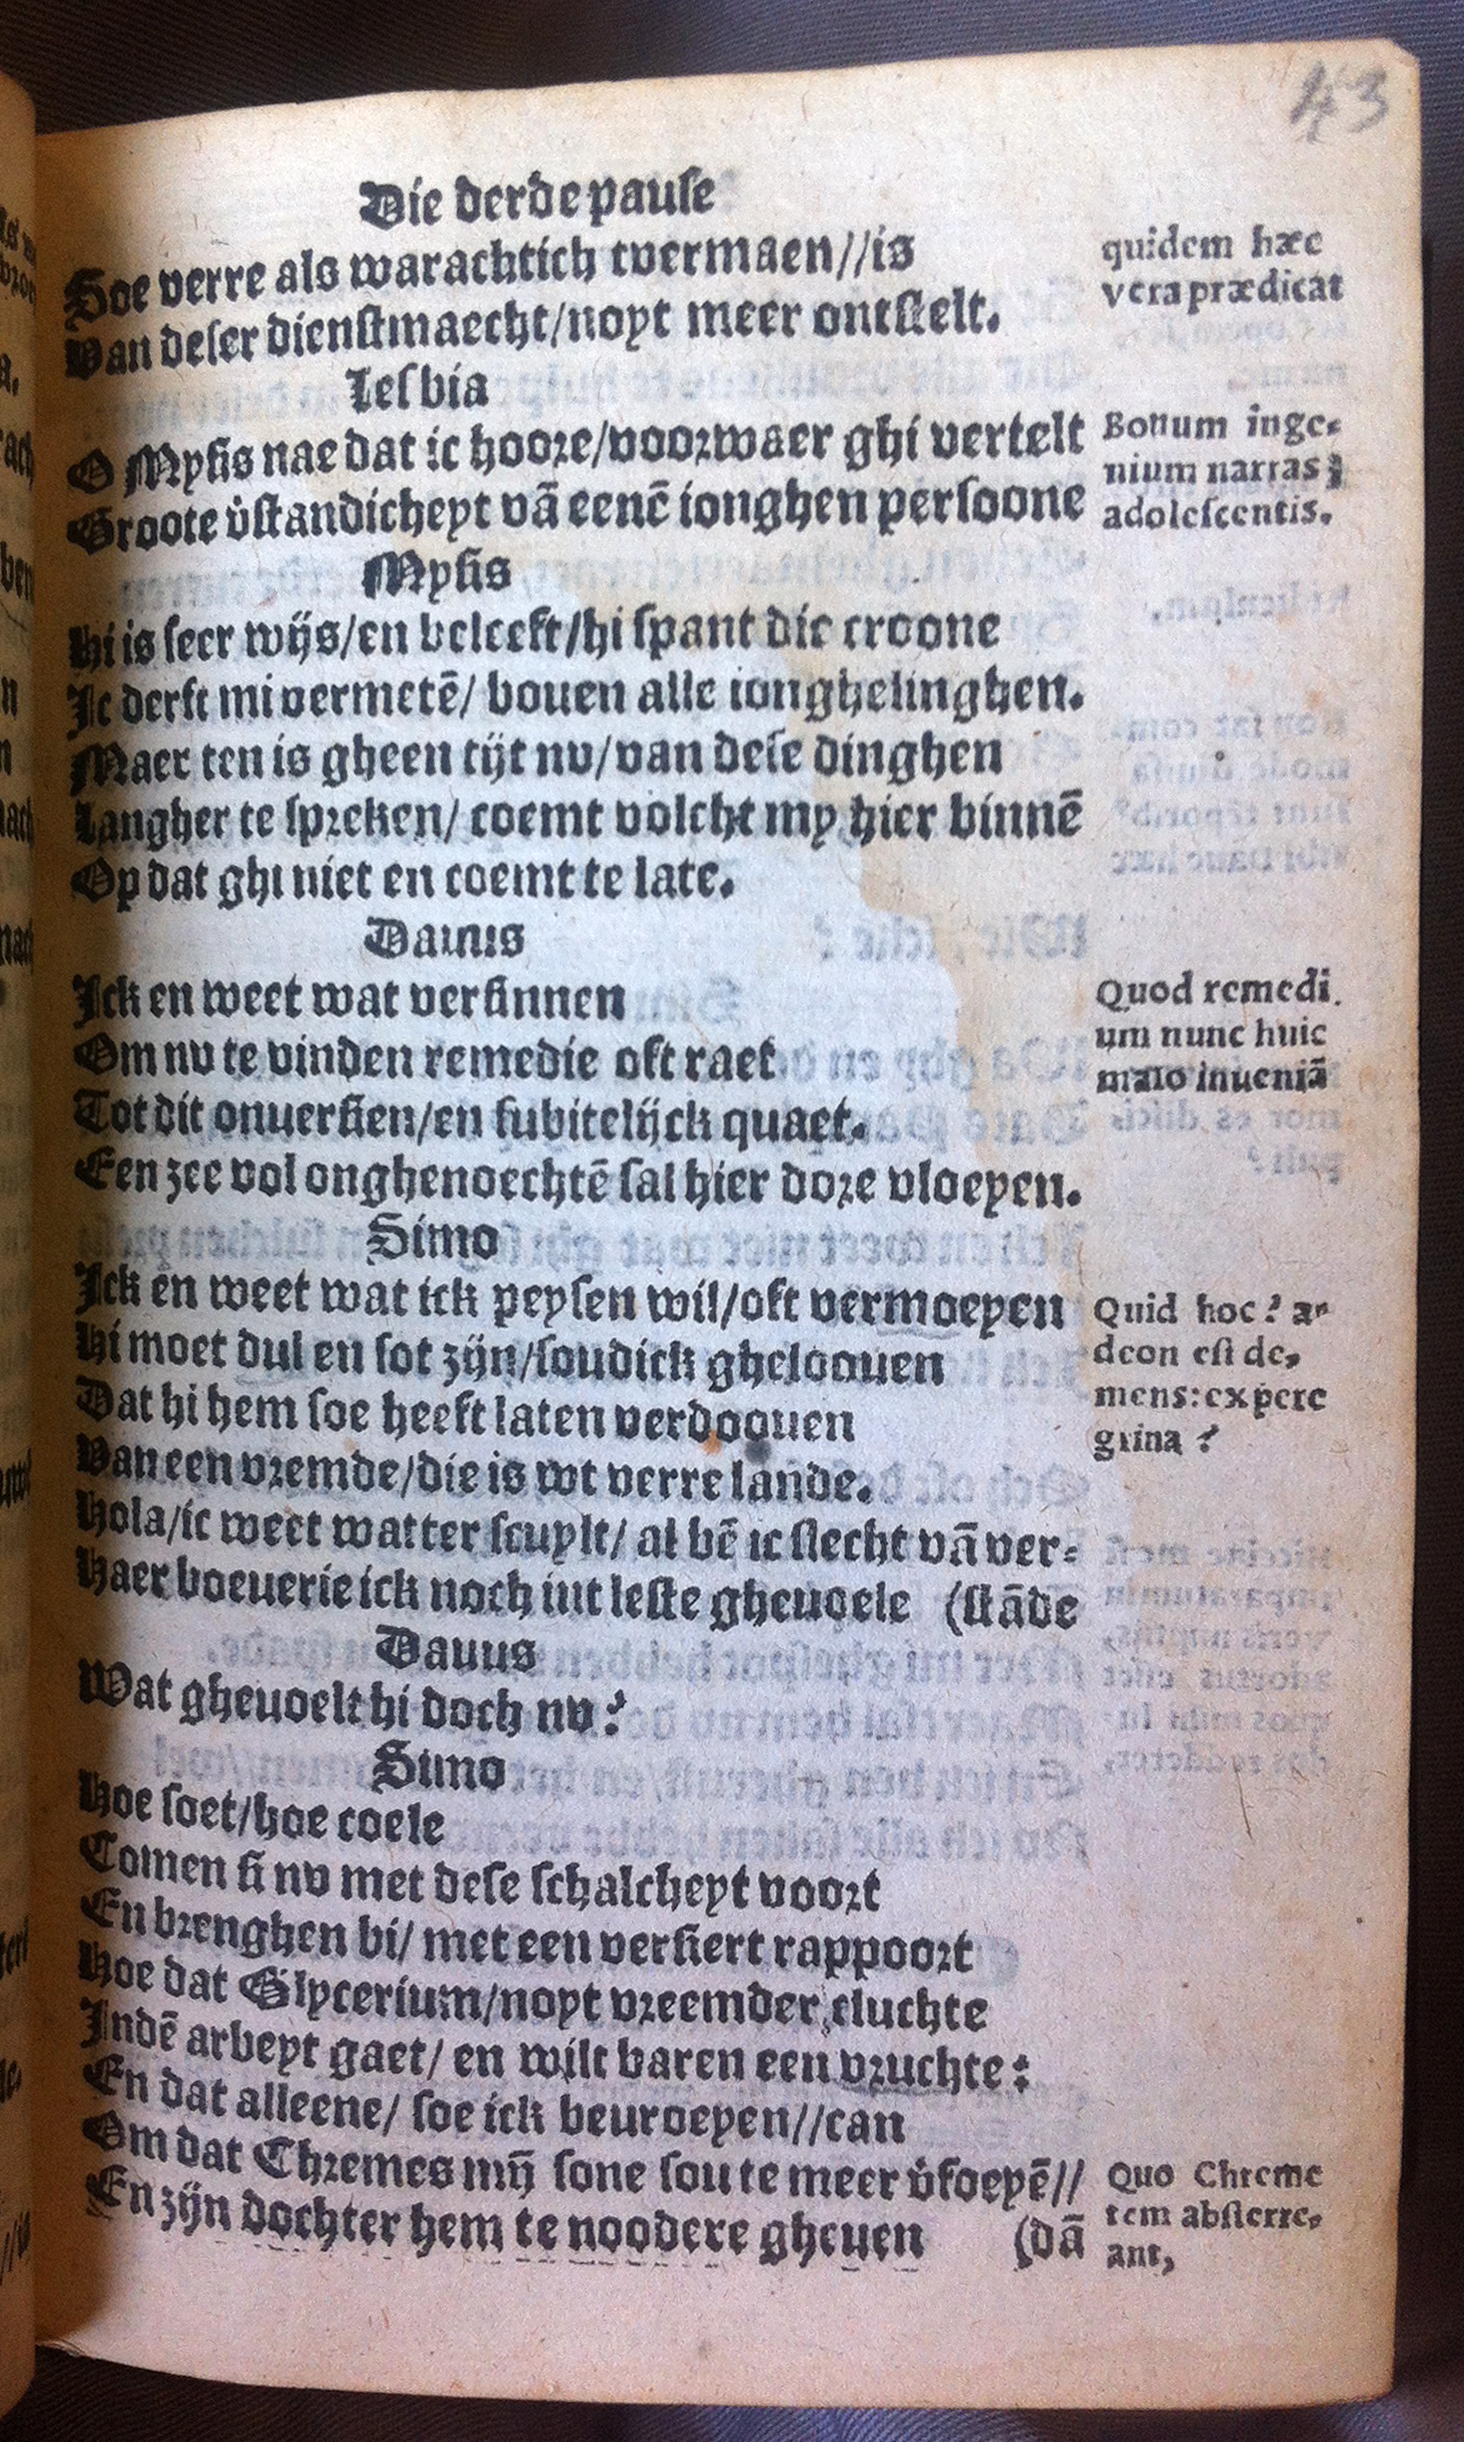 43
Die derde pause
Hoe verre als warachtich tvermaen//is
Van deser dienstmaecht/noyt meer ontstelt.
quidem hæc
vera prædicat
Lesbia
O Mysis nae dat ic hoore/voorwaer ghi vertelt
Groote v̓standicheyt vā eenē ionghen persoone
Bonum inge-
nium narras
adolescentis.
Mysis
Hi is seer wijs/en beleeft/hi spant die croone
Ic derft mi vermetē/ bouen alle ionghelinghen.
Maer ten is gheen tijt nv/van dese dinghen
Langher te spreken/ coemt volcht my hier binnē
Op dat ghi niet en coemt te late.
Dauus
Ick en weet wat versinnen
Om nv te vinden remedie oft raet
Tot dit onuersien/en subitelijck quaet.
Een zee vol onghenoechtē sal hier dore vloeyen.
Quod remedi
um nunc huic
malo inueniā
Simo
Ick en weet wat ick peysen wil/oft vermoeyen
Hi moet dul en sot zijn/soudick ghelooven
Dat hi hem soe heeft laten verdoouen
Van een vremde/die is wt verre lande.
Hola/ic weet watter scuylt/ al bē ic slecht vā ver-
Haer boeuerie ick noch int leste gheuoele (stāde
Quid hoc? a-
deon est de-
mens: ex pere
grina?
Dauus
Wat gheuoelt hi doch nv?
Simo
Hoe soet/hoe coele
Comen si nv met dese schalcheyt voort
En brenghen bi/ met een versiert rappoort
Hoe dat Glycerium/noyt vreemder cluchte
Indē arbeyt gaet/ en wilt baren een vruchte:
En dat alleene/ soe ick beuroeyen//can
Om dat Chremes mij̄ sone sou te meer v̓foeyē//
En zijn dochter hem te noodere gheuen (dā
Quo Chreme
tem absterre-
ant,